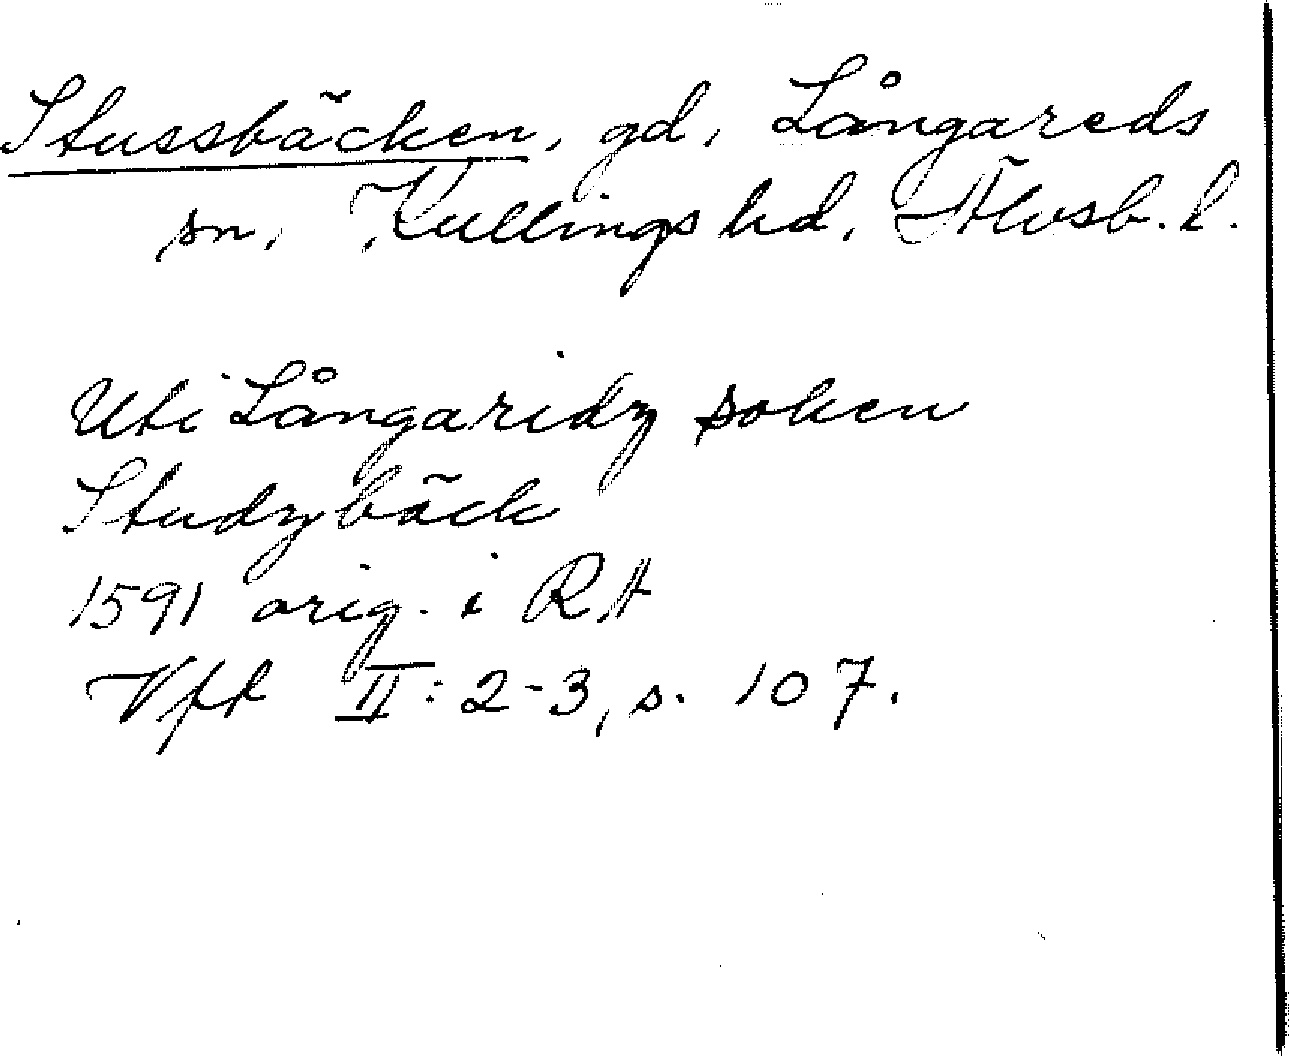 Stussbäcken, gd, Långareds
sn, Kullings hd, Älvsb. l.
Uti Långaridz soken
Studzbäck
1591 orig. i RA
Vfl II: 2-3, s. 107.